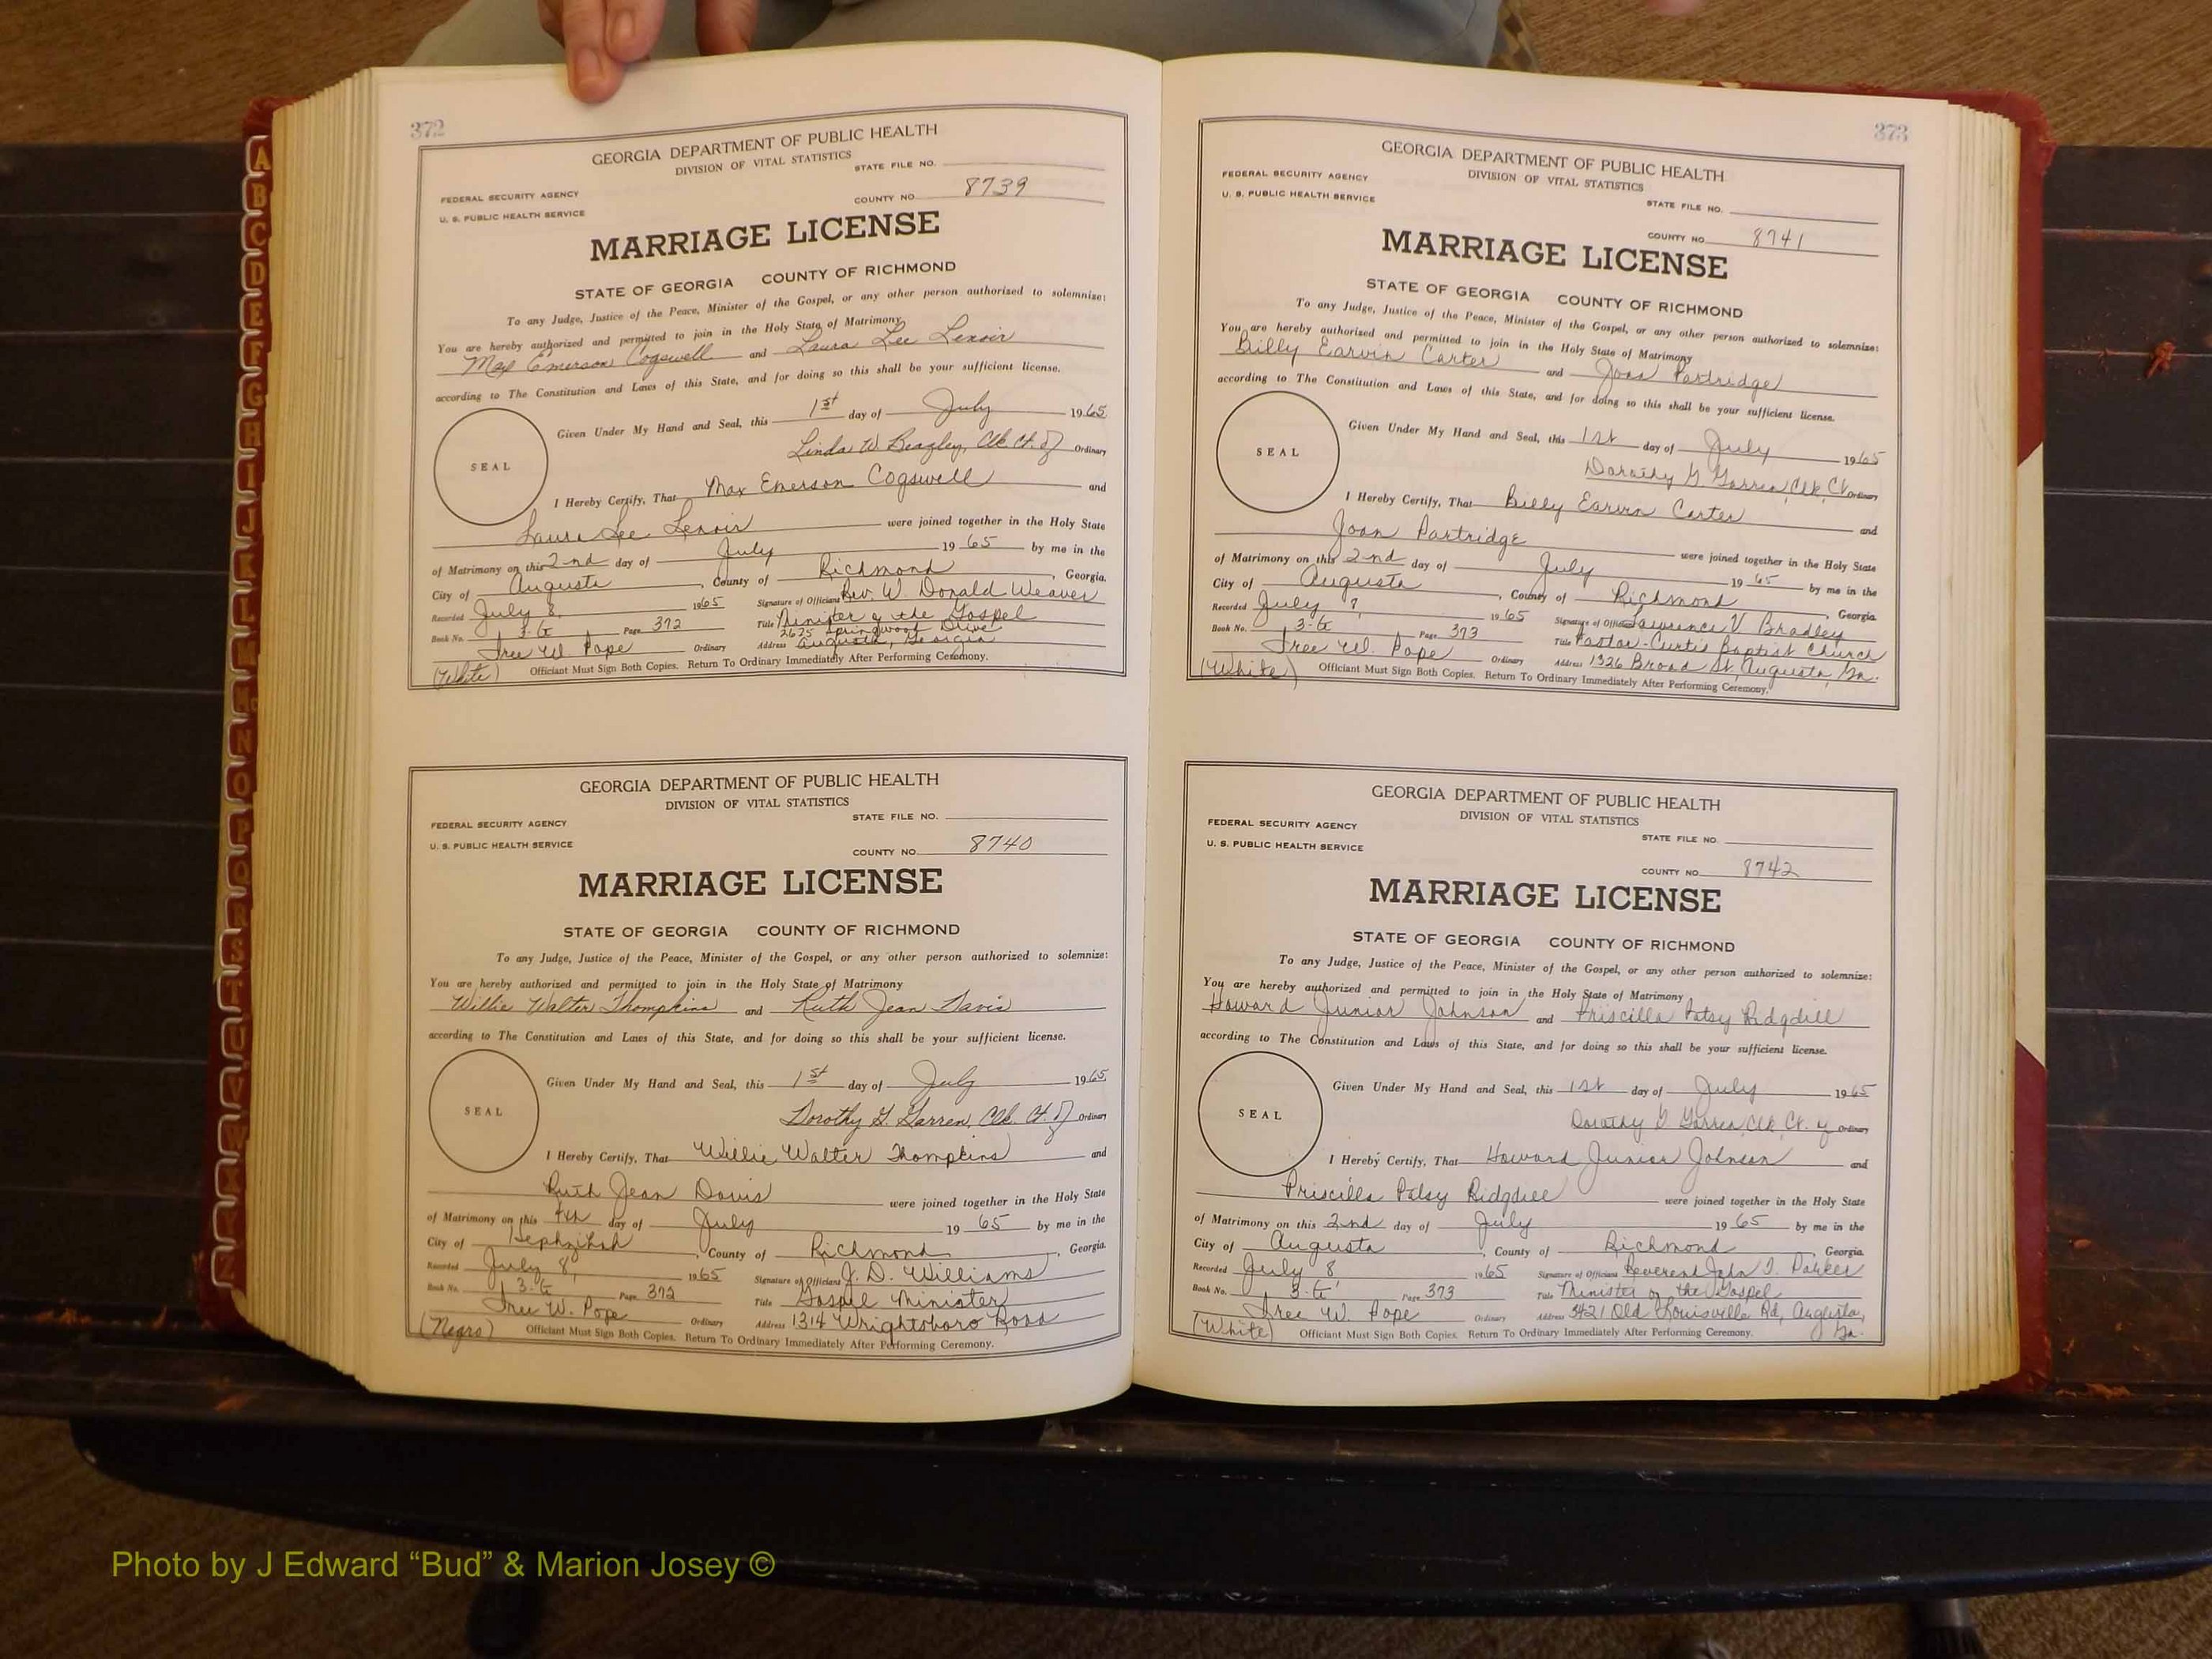 A
B
C
D
E
F
G
H
I
J
K
L
M
Mc
N
O
P
Q
R
S
T
U
V
W
X
Y
Z
372
GEORGIA DEPARTMENT OF PUBLIC HEALTH
DIVISION OF VITAL STATISTICS
STATE FILE NO.
FEDERAL SECURITY AGENCY
U. S. PUBLIC HEALTH SERVICE
COUNTY NO. 8739
MARRIAGE LICENSE
STATE OF GEORGIA COUNTY OF RICHMOND
To any Judge, Justice of the Peace, Minister of the Gospel, or any other person authorized to solemnize:
You are hereby authorized and permitted to join in the Holy State of Matrimony
Max Emerson Cogswell and Laura Lee Lenoir
according to The Constitution and Laws of this State, and for doing so this shall be your sufficient license.
SEAL
Given Under My Hand and Seal, this 1st day of July 1965
Linda W. Beazley, Clk. Ct. of Ordinary
I Hereby Certify, That Max Emerson Cogswell and
Laura Lee Lenoir were joined together in the Holy State
of Matrimony on this 2nd day of July 1965 by me in the
City of Augusta, County of Richmond, Georgia.
Recorded July 8, 1965 Signature of Officiant Rev. W. Donald Weaver
Book No. 3-G Page 372 Title Minister of the Gospel
2625 Springwood Drive
Free W. Pope Ordinary Address Augusta, Georgia
(White) Officiant Must Sign Both Copies. Return To Ordinary Immediately After Performing Ceremony.
GEORGIA DEPARTMENT OF PUBLIC HEALTH
DIVISION OF VITAL STATISTICS
STATE FILE NO.
FEDERAL SECURITY AGENCY
U. S. PUBLIC HEALTH SERVICE
COUNTY NO. 8740
MARRIAGE LICENSE
STATE OF GEORGIA COUNTY OF RICHMOND
To any Judge, Justice of the Peace, Minister of the Gospel, or any other person authorized to solemnize:
You are hereby authorized and permitted to join in the Holy State of Matrimony
Willie Walter Thompkins and Ruth Jean Davis
according to The Constitution and Laws of this State, and for doing so this shall be your sufficient license.
SEAL
Given Under My Hand and Seal, this 1st day of July 1965
Dorothy G. Garren, Clk. Ct. of Ordinary
I Hereby Certify, That Willie Walter Thompkins and
Ruth Jean Davis were joined together in the Holy State
of Matrimony on this 4th day of July 1965 by me in the
City of Hephzibah, County of Richmond, Georgia.
Recorded July 8, 1965 Signature of Officiant J. D. Williams
Book No. 3-G Page 372 Title Gospel Minister
Free W. Pope Ordinary Address 1314 Wrightsboro Road
(Negro) Officiant Must Sign Both Copies. Return To Ordinary Immediately After Performing Ceremony.
373
GEORGIA DEPARTMENT OF PUBLIC HEALTH
DIVISION OF VITAL STATISTICS
FEDERAL SECURITY AGENCY
U. S. PUBLIC HEALTH SERVICE
STATE FILE NO.
COUNTY NO. 8741
MARRIAGE LICENSE
STATE OF GEORGIA COUNTY OF RICHMOND
To any Judge, Justice of the Peace, Minister of the Gospel, or any other person authorized to solemnize:
You are hereby authorized and permitted to join in the Holy State of Matrimony
Billy Earvin Carter and Joan Partridge
according to The Constitution and Laws of this State, and for doing so this shall be your sufficient license.
SEAL
Given Under My Hand and Seal, this 1st day of July 1965
Dorothy G. Garren, Clk. Ct. Ordinary
I Hereby Certify, That Billy Earvin Carter and
Joan Partridge were joined together in the Holy State
of Matrimony on this 2nd day of July 1965 by me in the
City of Augusta, County of Richmond, Georgia
Recorded July 1965 Signature of Officiant Lawrence V. Bradley
Book No. 3-G Page 373 Title Pastor-Curtis Baptist Church
Free W. Pope Ordinary Address 1326 Broad St, Augusta, Ga.
(White) Officiant Must Sign Both Copies. Return To Ordinary Immediately After Performing Ceremony.
GEORGIA DEPARTMENT OF PUBLIC HEALTH
DIVISION OF VITAL STATISTICS
FEDERAL SECURITY AGENCY
U. S. PUBLIC HEALTH SERVICE
STATE FILE NO.
COUNTY NO. 8742
MARRIAGE LICENSE
STATE OF GEORGIA COUNTY OF RICHMOND
To any Judge, Justice of the Peace, Minister of the Gospel, or any other person authorized to solemnize:
You are hereby authorized and permitted to join in the Holy State of Matrimony
Howard Junior Johnson and Priscilla Patsy Ridgdill
according to The Constitution and Laws of this State, and for doing so this shall be your sufficient license.
SEAL
Given Under My Hand and Seal, this 1st day of July 1965
Dorothy G Garren, Clk. Ct. of Ordinary
I Hereby Certify, That Howard Junior Johnson and
Priscilla Patsy Ridgdill were joined together in the Holy State
of Matrimony on this 2nd day of July 1965 by me in the
City of Augusta, County of Richmond, Georgia
Recorded July 8, 1965 Signature of Officiant Reverend John
Book No. 3-G Page 373 Title Minister of the Gospel
Free W. Pope Ordinary Address 3421 Old Louisville Rd, Augusta,
Ga.
(White) Officiant Must Sign Both Copies. Return To Ordinary Immediately After Performing Ceremony.
Photo by J Edward “Bud” & Marion Josey ©